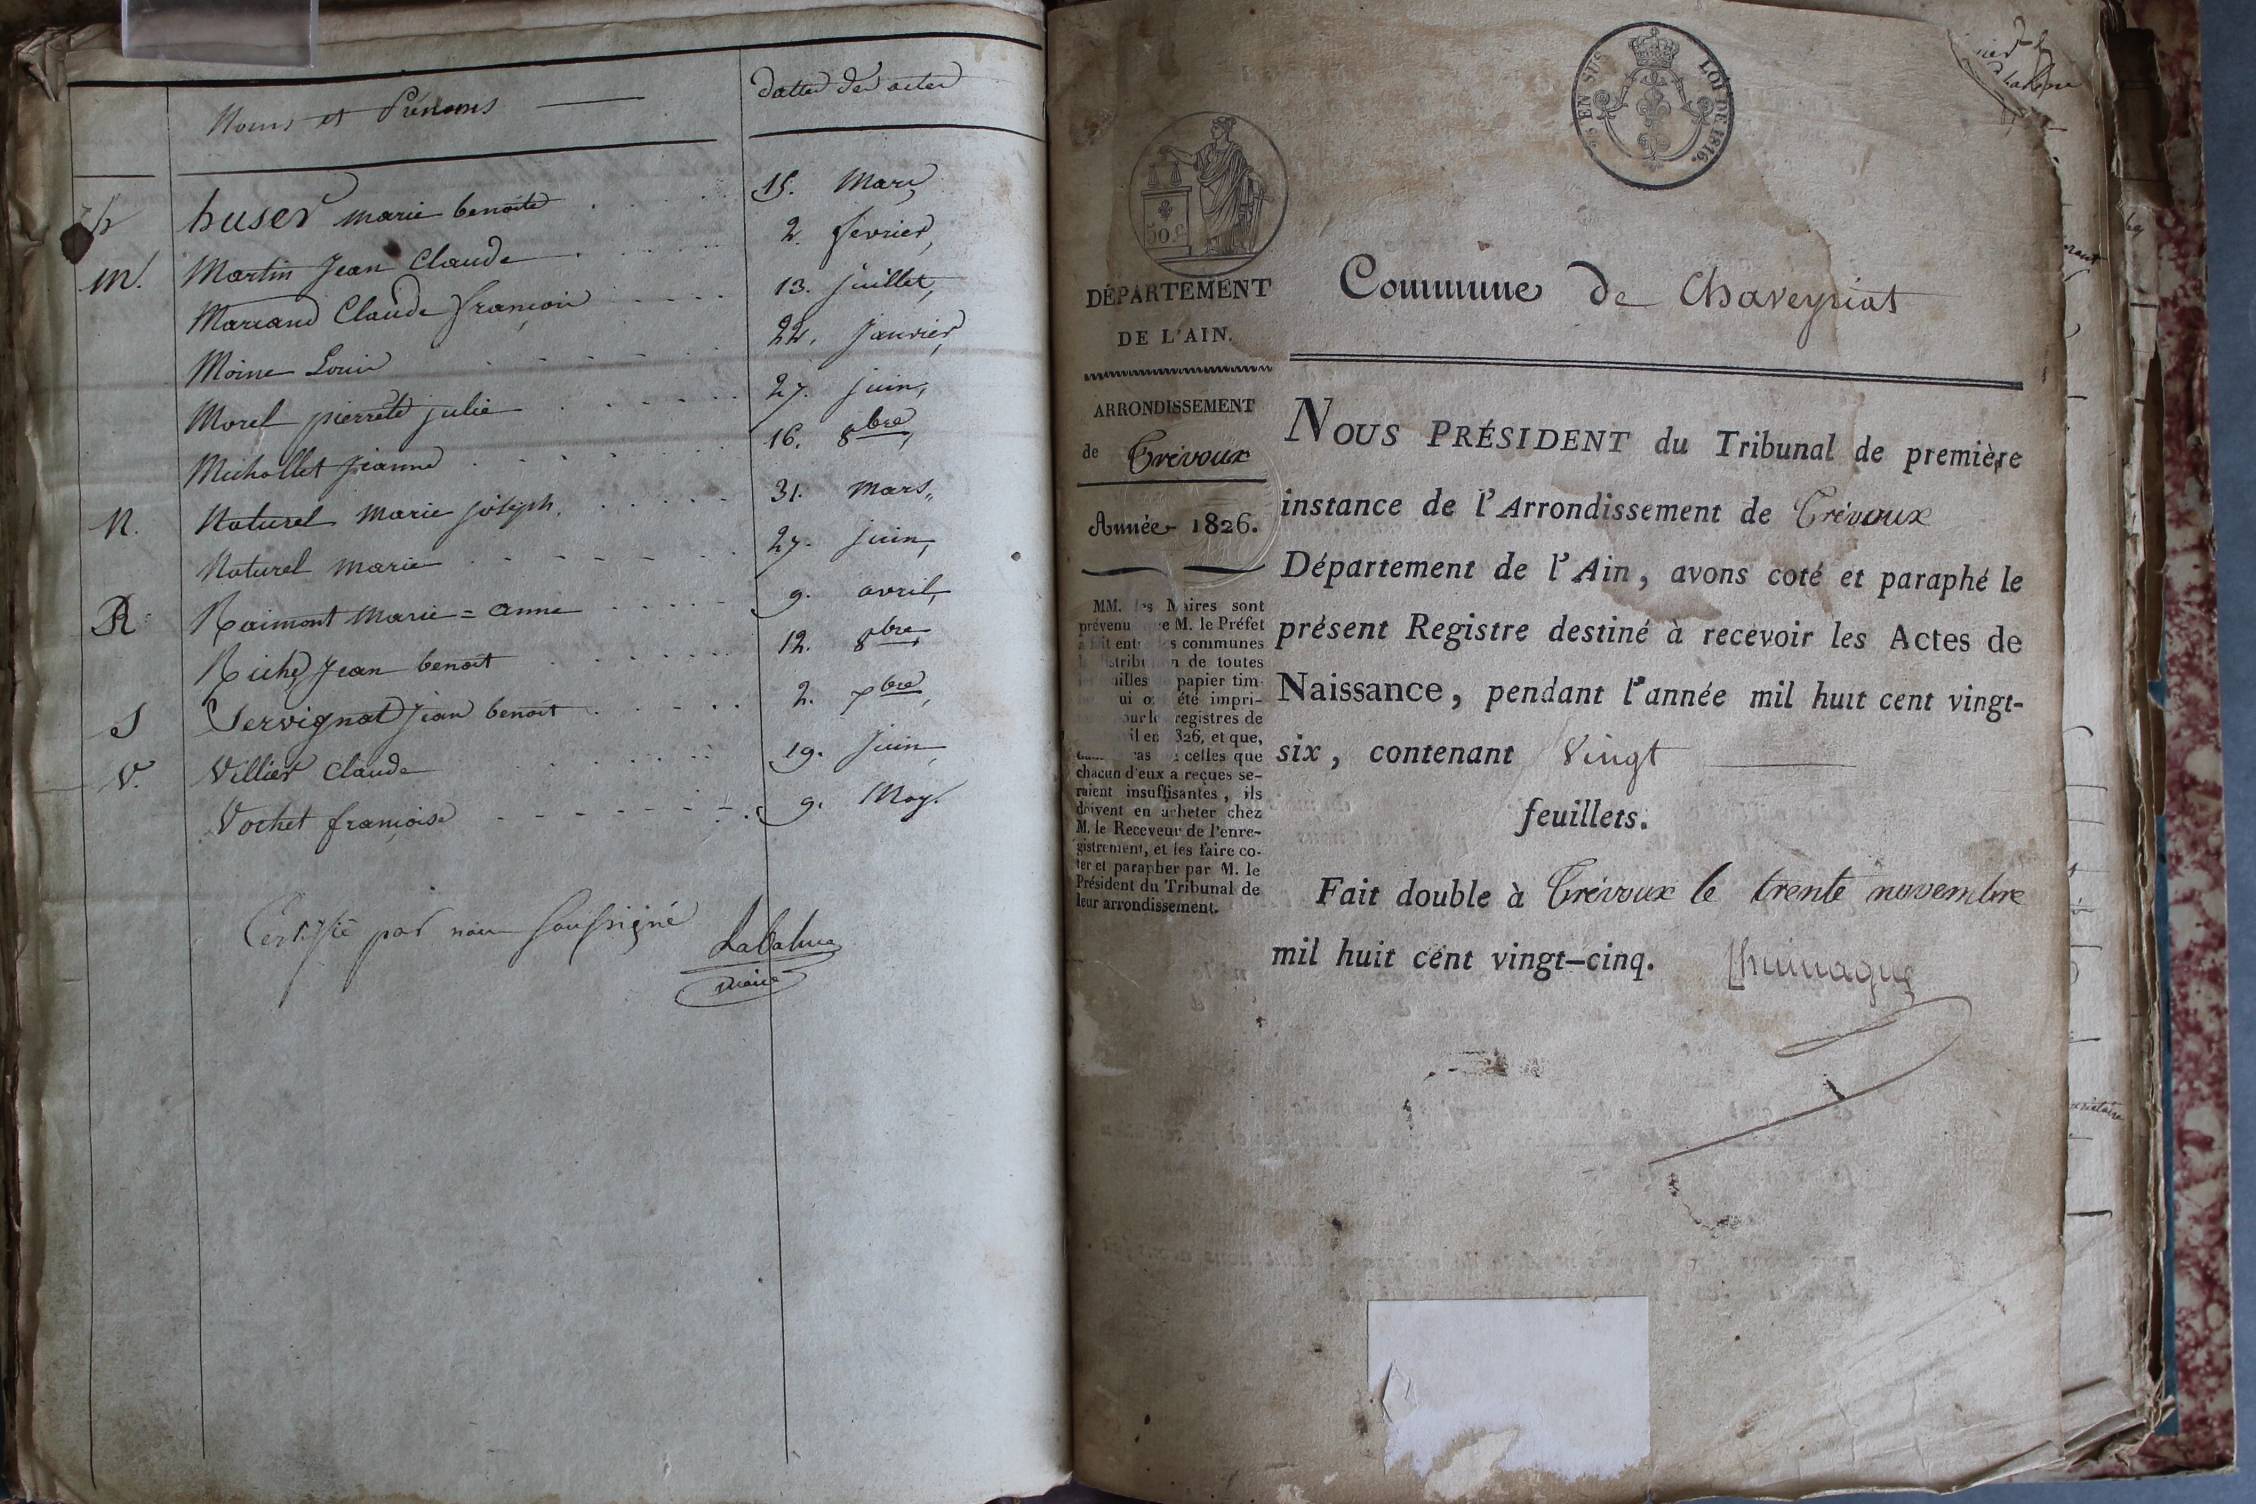 Noms et Prénoms
dattes des actes
h huser marie benoite 15. Mars,
M. Martin Jean Claude 2. fevrier,
Marraud Claude françois 13. juillet,
Moine Louis 22. janvier,
Morel pierrette julie 27. juin,
Michollet jeanne 16. 8bre,
N. Naturel marie joseph. 31. mars,
Naturel marie 27. juin,
R. Raimont marie=anne 9. avril,
Riche Jean benoit 12. 8bre,
S Servignat jean benoit 2. 7bre,
V. Villier Claude 19. juin,
Vochet françoise 9. May.
Certifié par nous soussigné
Maire
EN SUS LOI DE 1816.
50 c
DÉPARTEMENT
DE L'AIN.
ARRONDISSEMENT
de Trévoux
Année 1826.
MM. les Maires sont
prévenu que M. le Préfet
a fait entre les communes
la distribution de toutes
papier tim-
été impri-
registres de
et que,
celles que
chacun d'eux a reçues se-
raient insuffisantes, ils
doivent en acheter chez
M. le Receveur de l'enre-
gistrement, et les faire co-
ter et parapher par M. le
Président du Tribunal de
leur arrondissement.
Commune de Chaveyriat
NOUS PRÉSIDENT du Tribunal de première
instance de l'Arrondissement de Trévoux
Département de l'Ain, avons coté et paraphé le
présent Registre destiné à recevoir les Actes de
Naissance, pendant l'année mil huit cent vingt-
six, contenant Vingt
feuillets.
Fait double à Trévoux le trente novembre
mil huit cent vingt-cinq.